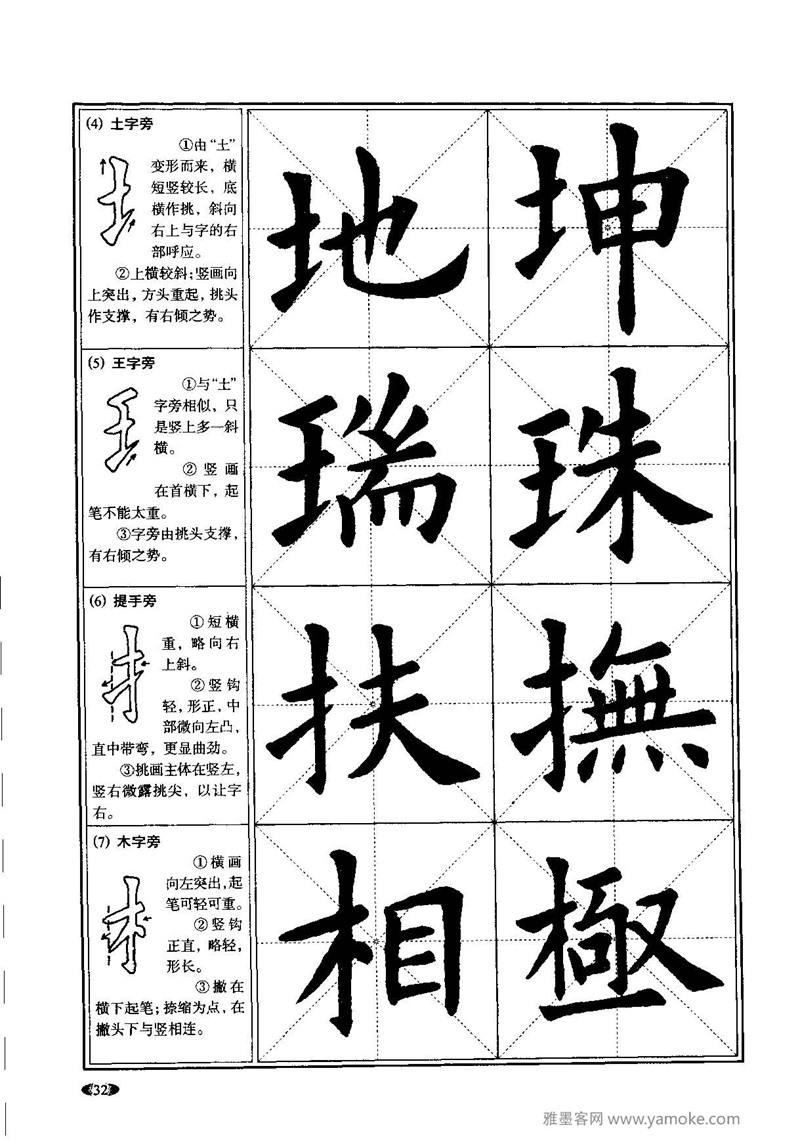 (4) 土字旁
①由“土”
变形而来，横
短竖较长，底
横作挑，斜向
右上与字的右
部呼应。
②上横较斜；竖画向
上突出，方头重起，挑头
作支撑，有右倾之势。
地 坤
(5) 王字旁
①与“土”
字旁相似，只
是竖上多一斜
横。
②竖画
在首横下，起
笔不能太重。
③字旁由挑头支撑，
有右倾之势。
瑞 珠
(6) 提手旁
①短横
重，略向右
上斜。
②竖钩
轻，形正，中
部微向左凸，
直中带弯，更显曲劲。
③挑画主体在竖左，
竖右微露挑尖，以让字
右。
扶 撫
(7) 木字旁
①横画
向左突出，起
笔可轻可重。
②竖钩
正直，略轻，
形长。
③撇在
横下起笔；捺缩为点，在
撇头下与竖相连。
相 極
32
雅墨客网 www.yamoke.com